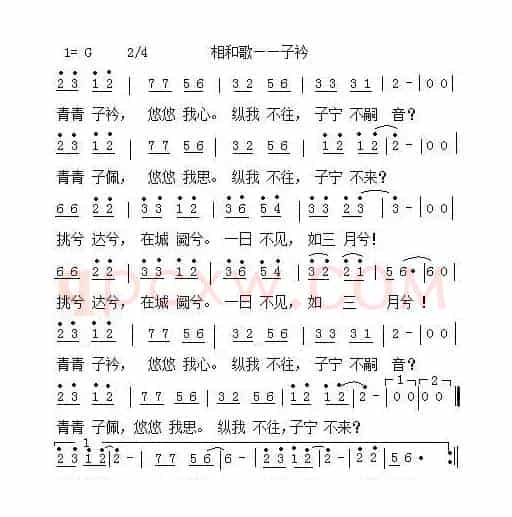 1= G 2/4 相和歌——子衿
2̇ 3̇ 1̇ 2̇ | 7 7 5 6 | 3 2 5 6 | 3 3 3 1 | 2 - | 0 0 |
青青 子衿， 悠悠 我心。 纵我 不往， 子宁 不嗣 音？
2̇ 3̇ 1̇ 2̇ | 7 7 5 6 | 3 2 5 6 | 1̇ 2̇ 1̇ 2̇ | 2̇ - | 0 0 |
青青 子佩， 悠悠 我思。 纵我 不往， 子宁 不来？
6 6 2̇ 2̇ | 3̇ 3̇ 1̇ 2̇ | 3̇ 6̇ 5̇ 4̇ | 3̇ 3̇ 2̇ 3̇ | 3̇ - | 0 0 |
挑兮 达兮， 在城 阙兮。 一日 不见， 如三 月兮！
6 6 2̇ 2̇ | 3̇ 3̇ 1̇ 2̇ | 3̇ 6̇ 5̇ 4̇ | 3̇ 2̇ 2̇ 1̇ | 5 6 • | 6 0 |
挑兮 达兮， 在城 阙兮。 一日 不见， 如 三 月兮！
2̇ 3̇ 1̇ 2̇ | 7 7 5 6 | 3 2 5 6 | 3 3 3 1 | 2 - | 0 0 |
青青 子衿， 悠悠 我心。 纵我 不往， 子宁 不嗣 音？
1 2
2̇ 3̇ 1̇ 2̇ | 7 7 5 6 | 3 2 5 6 | 1̇ 2̇ 1̇ 2̇ | 2̇ - | 0 0 | 0 0 ‖
青青 子佩， 悠悠 我思。 纵我 不往， 子宁 不来？
1
2̇ 3̇ 1̇ 2̇ | 2̇ - | 7 7 5 6 | 6 - | 2̇ 3̇ 1̇ 2̇ | 2̇ - | 2̇ 2̇ 5 6 • :‖
qpcxw.com